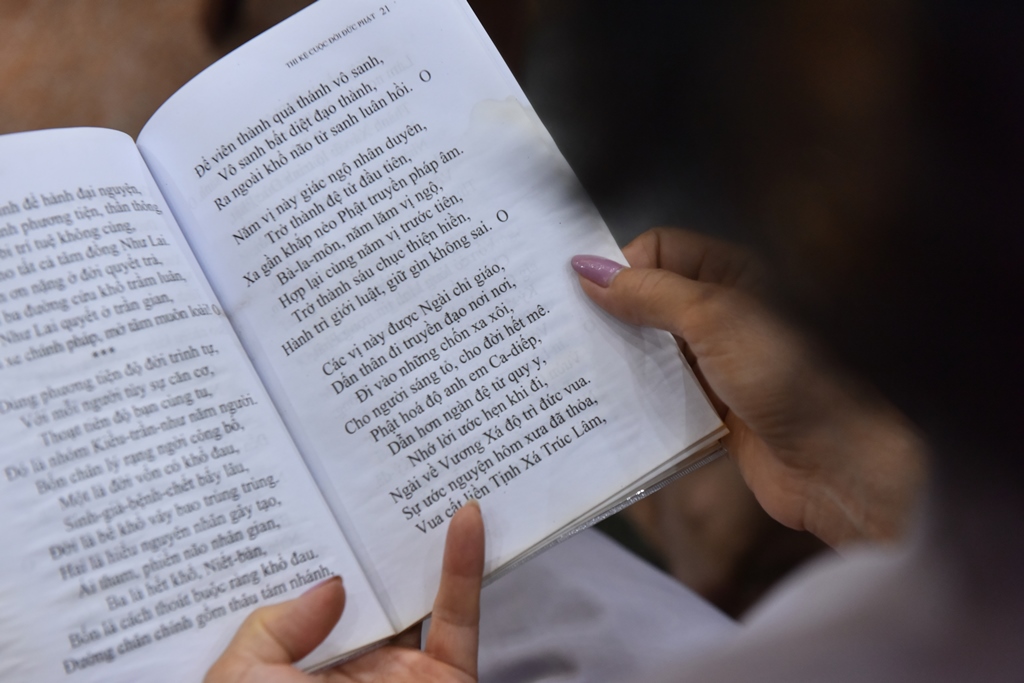 hành đại nguyện,
phương tiện, thần thông,
trí tuệ không cùng,
tất cả tâm đồng Như Lai.
ơn nặng ở đời quyết trả,
ba đường cứu khổ trầm luân,
Như Lai quyết ở trần gian,
xe chánh pháp, mở tâm muôn loài! O
***
Dùng phương tiện độ đời trình tự,
Với mỗi người tùy sự căn cơ,
Thoạt tiên độ bạn cùng tu,
Đó là nhóm Kiều-trần-như năm người.
Bốn chân lý rạng ngời công bố,
Một là đời vốn có khổ đau,
Sinh-già-bệnh-chết bấy lâu,
Đời là bể khổ vây bao trùng trùng.
Hai là hiểu nguyên nhân gây tạo,
Ái tham, phiền não nhân gian,
Ba là hết khổ, Niết-bàn,
Bốn là cách thoát buộc ràng khổ đau.
Đường chân chính gồm thâu tám nhánh,
THI KỆ CUỘC ĐỜI ĐỨC PHẬT 21
Để viên thành quả thánh vô sanh,
Vô sanh bất diệt đạo thành,
Ra ngoài khổ não tử sanh luân hồi. O
Năm vị này giác ngộ nhân duyên,
Trở thành đệ tử đầu tiên,
Xa gần khắp nẻo Phật truyền pháp âm.
Bà-la-môn, năm lăm vị ngộ,
Hợp lại cùng năm vị trước tiên,
Trở thành sáu chục thiện hiền,
Hành trì giới luật, giữ gìn không sai. O
Các vị này được Ngài chỉ giáo,
Dấn thân đi truyền đạo nơi nơi,
Đi vào những chốn xa xôi,
Cho người sáng tỏ, cho đời hết mê.
Phật hoá độ anh em Ca-diếp,
Dẫn hơn ngàn đệ tử quy y,
Nhớ lời ước hẹn khi đi,
Ngài về Vương Xá độ trì đức vua.
Sự ước nguyện hôm xưa đã thỏa,
Vua cất liền Tịnh Xá Trúc Lâm,